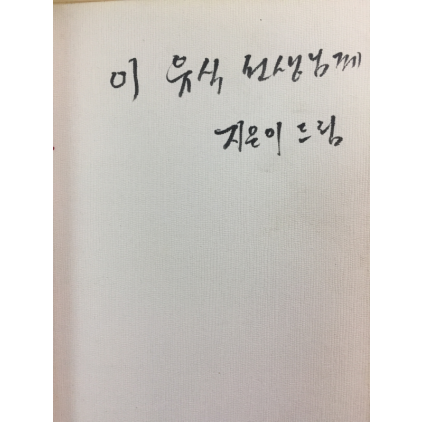 이 유식 선생님께
지은이 드림